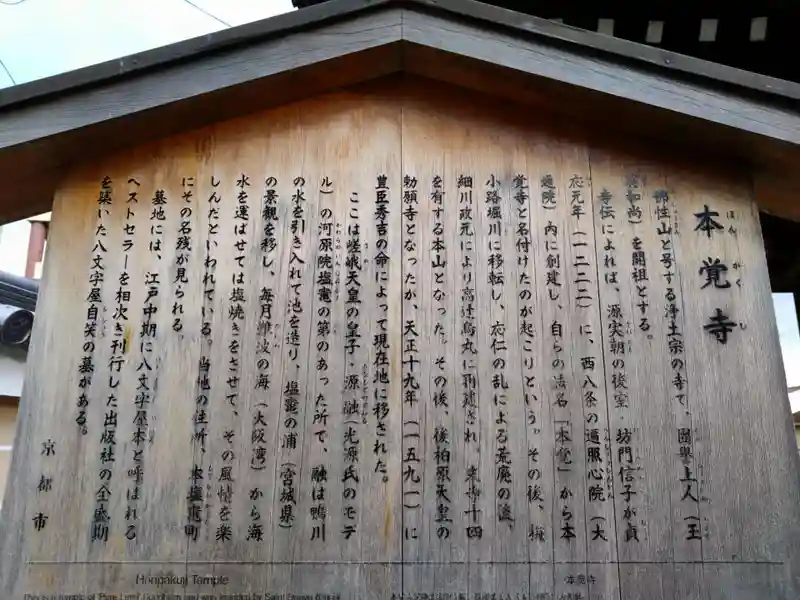 本覚寺
ほんがくじ
佛性山と号する浄土宗の寺で、團譽上人（玉
翁和尚）を開祖とする。
寺伝によれば、源実朝の後室・坊門信子が貞
応元年（一二二二）に、西八条の遍照心院（大
通院）内に創建し、自らの法名「本覚」から本
覚寺と名付けたのが起こりという。その後、梅
小路堀川に移転し、応仁の乱による荒廃の後、
細川政元により高辻烏丸に再建され、末寺十四
を有する本山となった。その後、後柏原天皇の
勅願寺となったが、天正十九年（一五九一）に
豊臣秀吉の命によって現在地に移された。
ここは嵯峨天皇の皇子・源融（光源氏のモデ
ル）の河原院塩竈の第のあった所で、融は鴨川
の水を引き入れて池を造り、塩竈の浦（宮城県）
の景観を移し、毎月難波の海（大阪湾）から海
水を運ばせては塩焼きをさせて、その風情を楽
しんだといわれている。当地の住所、本塩竈町
にその名残が見られる。
墓地には、江戸中期に八文字屋本と呼ばれる
ベストセラーを相次ぎ刊行した出版社の全盛期
を築いた八文字屋自笑の墓がある。
京都市
Hongakuji Temple
本觉寺